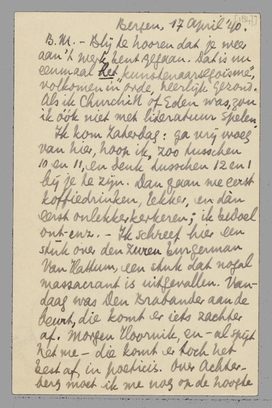 Bergen, 17 April '40.
B.M. – Blij te hooren dat je weer
aan 't werk bent gegaan. Dat is nu
eenmaal het "kunstenaarsegoïsme",
volkomen in orde, heerlijk gezond.
Als ik Churchill of Eden was, zou
ik óók niet met literatuur spelen.
Ik kom Zaterdag: ga vrij vroeg
van hier, hoop ik, zoo tusschen
10 en 11, en denk tusschen 12 en 1
bij je te zijn. Dan gaan we eerst
koffiedrinken, lekker, en dàn
eerst ontlekkerkerkeren; ik bedoel
ont-enz. – Ik schreef hier een
stuk over den zuren burgerman
Van Hattum, een stuk dat nogal
massacrant is uitgevallen. Van-
daag was Den Brabander aan de
beurt, die komt er iets zachter
af. Morgen Hoornik, en – al spijt
het me – die komt er toch het
best af, in poeticis. Over Achter-
berg moet ik me nog op de hoogte